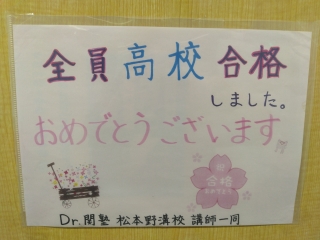 全員高校合格
しました。
おめでとうございます
祝
合格
おめでとう
Dr.関塾 松本野溝校 講師一同